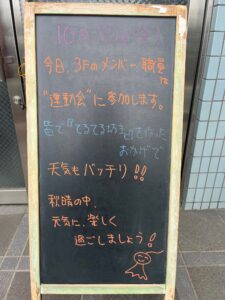 今日、3Fのメンバー、職員で
"運動会"に参加します。
皆で『てるてる坊主』を作った
おかげで
天気もバッチリ!!
秋晴の中、
元気に、楽しく
過ごしましょう!